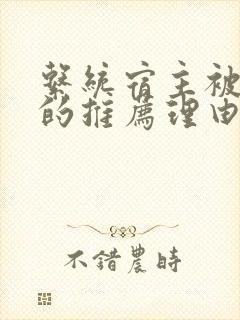 繫統宿主被
的推薦理由
不錯農時